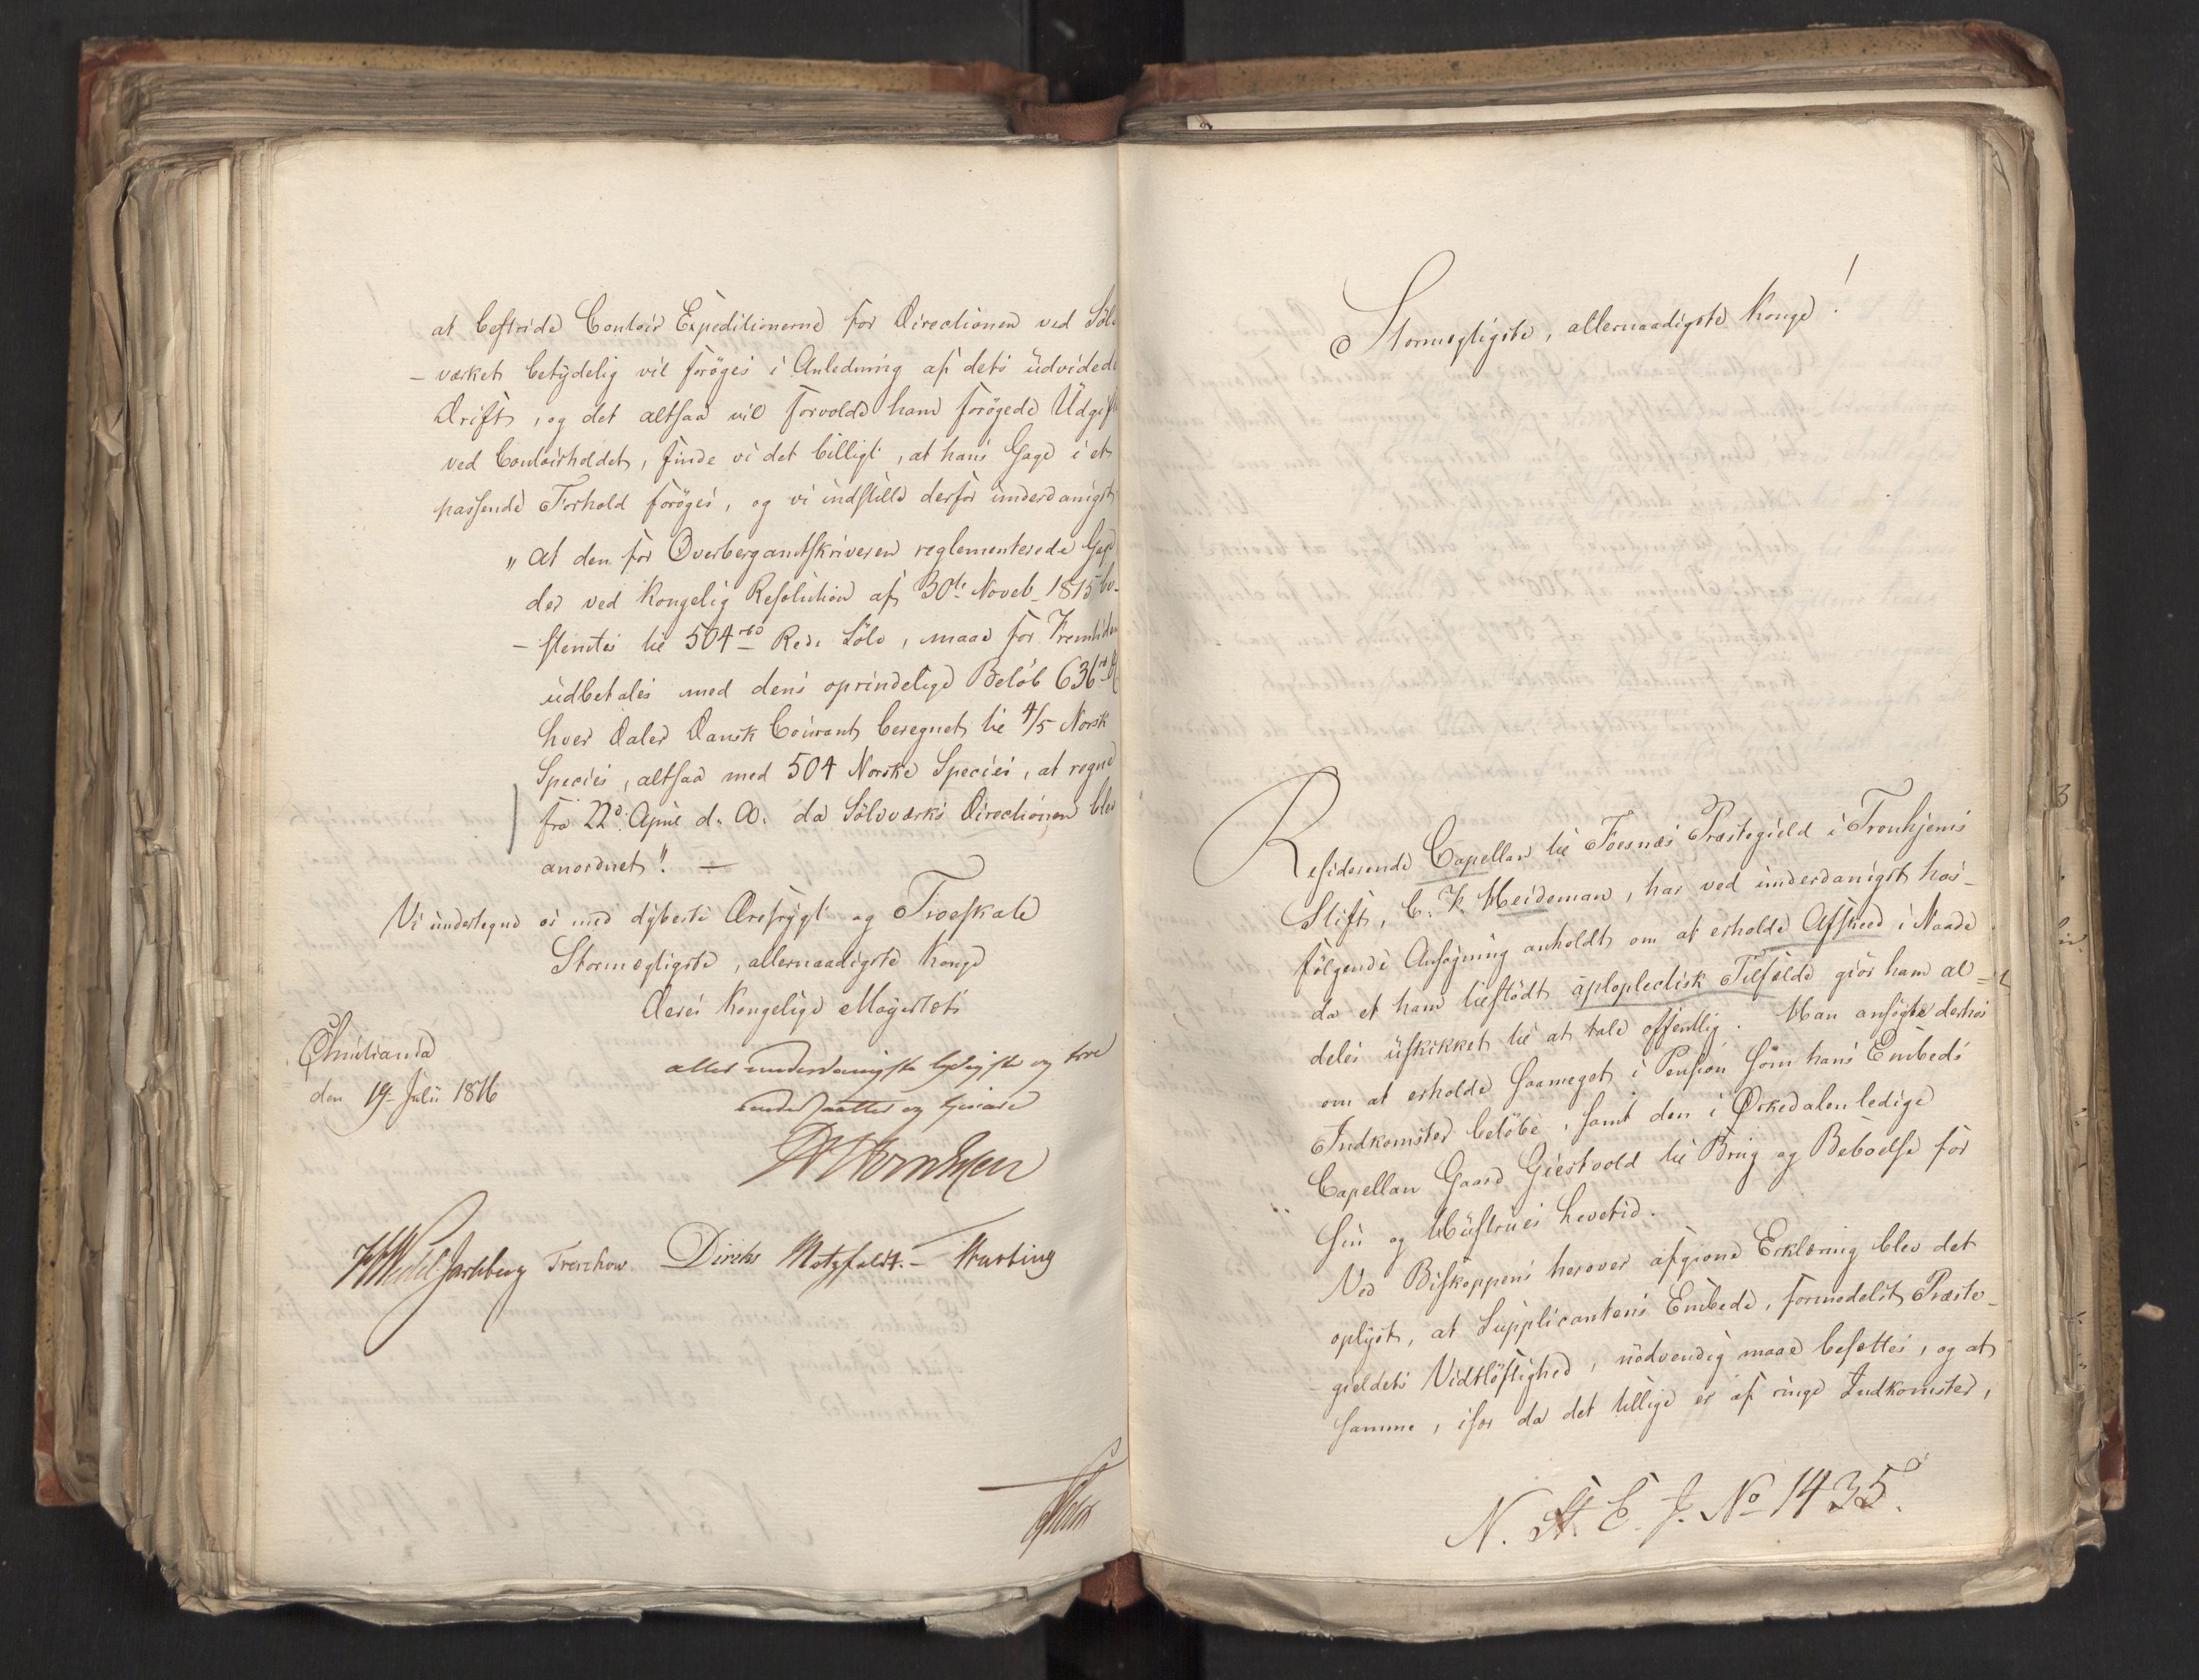 at bestride Contoir Expeditionerne for Directionen ved Sölv
- værket betydelig vil forøges i Anledning af dets udvidede
Drift, og det altsaa vil forvolde ham forøgede Udgift
ved Contoirholdet, finde vi det billigt, at hans Gage i et
passende Forhold forøges, og vi indstille derfor underdanigst
„ at den for Overbergamtskriveren reglementerede Gage
der ved Kongelig Resolution af 30te Noveb. 1815 be-
- stemtes til 504 rbd Rede Sölv, maae for Fremtiden
udbetales med dens oprindelige Beløb 636 rd
hver Daler Dansk Courant beregnet til 4/5 Norsk
Species, altsaa med 504 Norske Species, at regne
fra 22de April d. A. da Sölvværks Directionen blev
anordnet". —
Vi undertegne os med dybeste Ærefrygt og Troeskab
Stormægtigste, allernaadigste Konge
Deres Kongelige Majestets
Christiania
den 19 Julii 1816
allerunderdanigste lydigste og troe
undersaatter og tjenere
HWedel Jarlsberg Treschow. Diriks Motzfeldt. - Krebting
Stormægtigste, allernaadigste Konge!
Residerende Capellan til Foesnæs Præstegield i Tronhjems
Stift, C. K. Heideman, har ved underdanigst hos-
følgende Ansøgning anholdt om at erholde Afskeed i Naade
da et ham tilstødt aploplectisk Tilfælde giør ham al=
deles uskikket til at tale offentlig. Han ansøgte derhos
om at erholde saameget i Pension som hans Embeds
Indkomster beløbe, samt den i Ørkedalen ledige
Capellan Gaard Giestvold til Brug og Beboelse for
sin og Hustrues Levetid.
Ved Biskoppens herover afgivne Erklæring blev det
oplyst, at Supplicantens Embede, formedelst Præste-
gieldets Vidtløftighed, nødvendig maae besættes, og at
samme, især da det tillige er af ringe Indkomster,
N. St. E. J. No 1435.